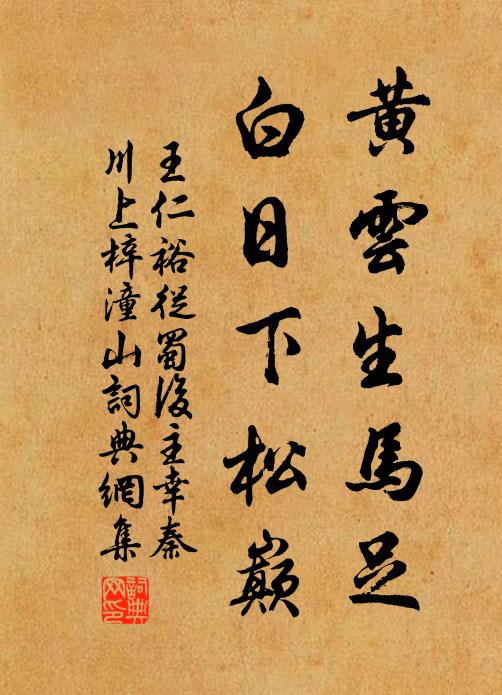 黃雲生馬足
白日下松巔
王仁裕從蜀後主幸秦
川上梓潼山詞典網集
詞典
网印